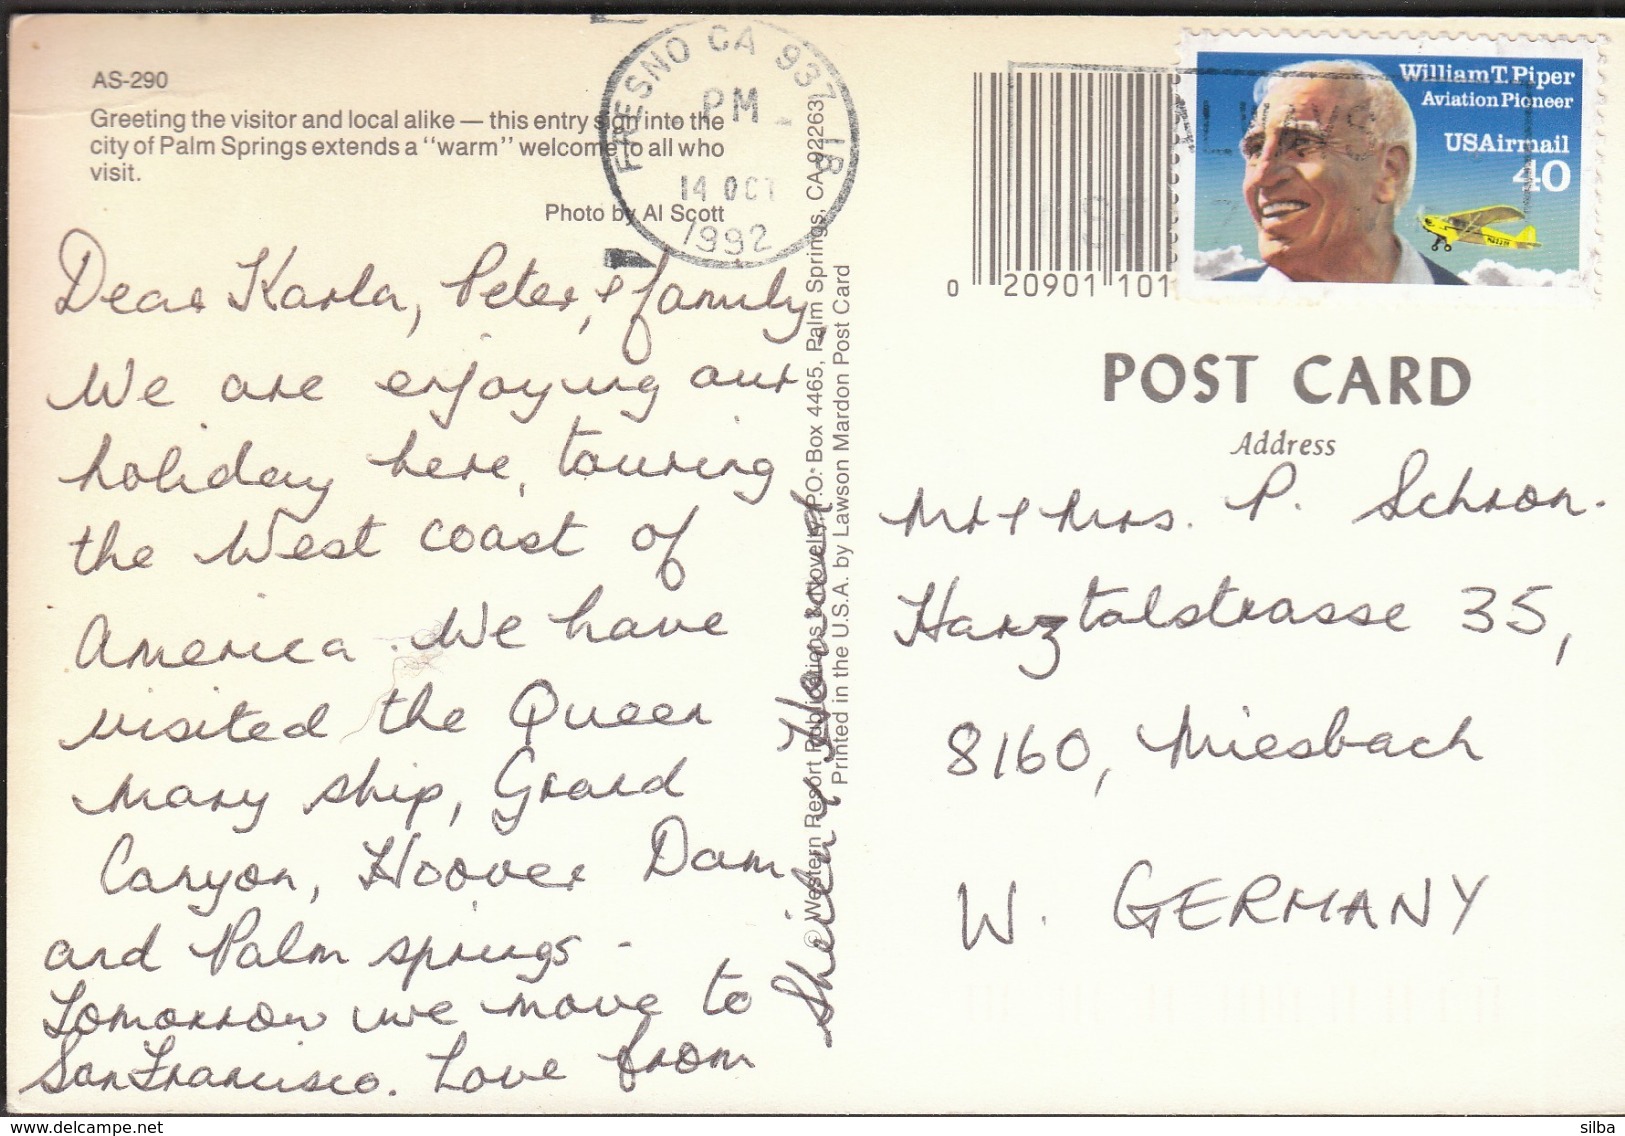 AS-290
Greeting the visitor and local alike — this entry sign into the
city of Palm Springs extends a "warm" welcome to all who
visit.
Photo by Al Scott
FRESNO CA 937 1B
PM
14 OCT
1992
Dear Karla, Peter, & family,
We are enjoying our
holiday here, touring
the West coast of
America. We have
visited the Queen
Mary ship, Grand
Canyon, Hoover Dam
and Palm springs -
Tomorrow we move to
San Francisco. Love from
© Western Resort Publications & Novelty, P.O. Box 4465, Palm Springs, CA 92263
Printed in the U.S.A. by Lawson Mardon Post Card
0 20901 101
William T. Piper
Aviation Pioneer
USAirmail
40
ALWAYS
POST CARD
Address
Mr & Mrs. P. Schron.
Harztalstrasse 35,
8160, Miesbach
W. GERMANY
www.delcampe.net
silba